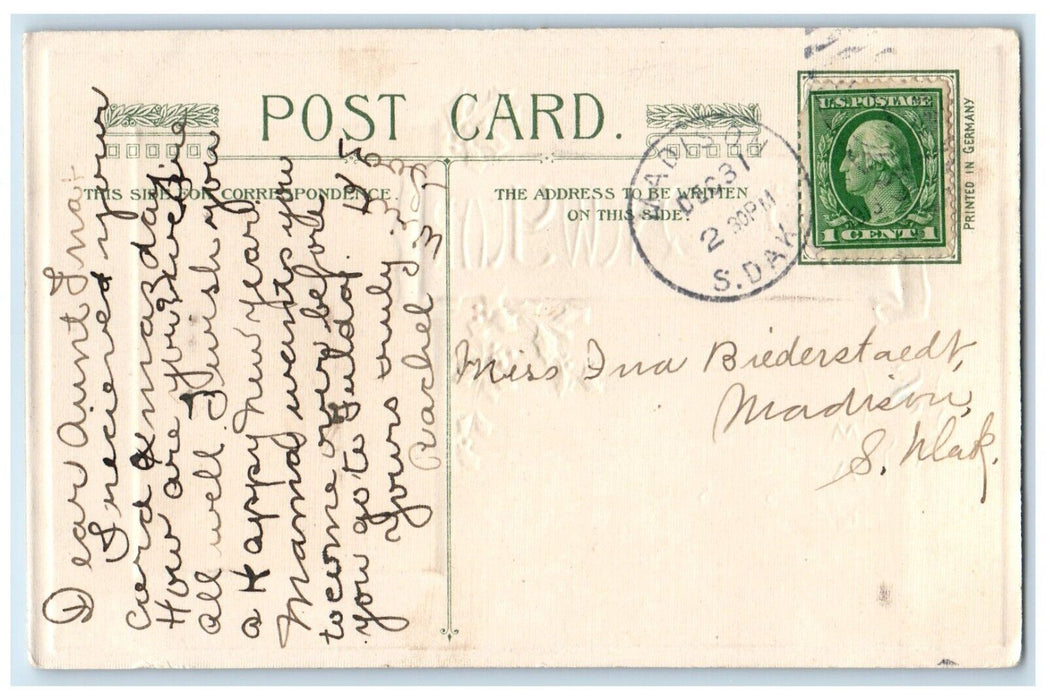 POST CARD.
THIS SIDE FOR CORRESPONDENCE.
THE ADDRESS TO BE WRITTEN
ON THIS SIDE.
U.S. POSTAGE
1 CENT 1
PRINTED IN GERMANY
DEC 31
2 30PM
S. DAK
Dear Aunt Ina:
I recieved your
card Xmaz day
How are you? we're
all well. I wish you
a Happy New Year.
Mama wants you
to come over before
you go to Fulda.
Yours truly
Rachel
Miss Ina Biederstaedt,
Madison,
S. Dak.